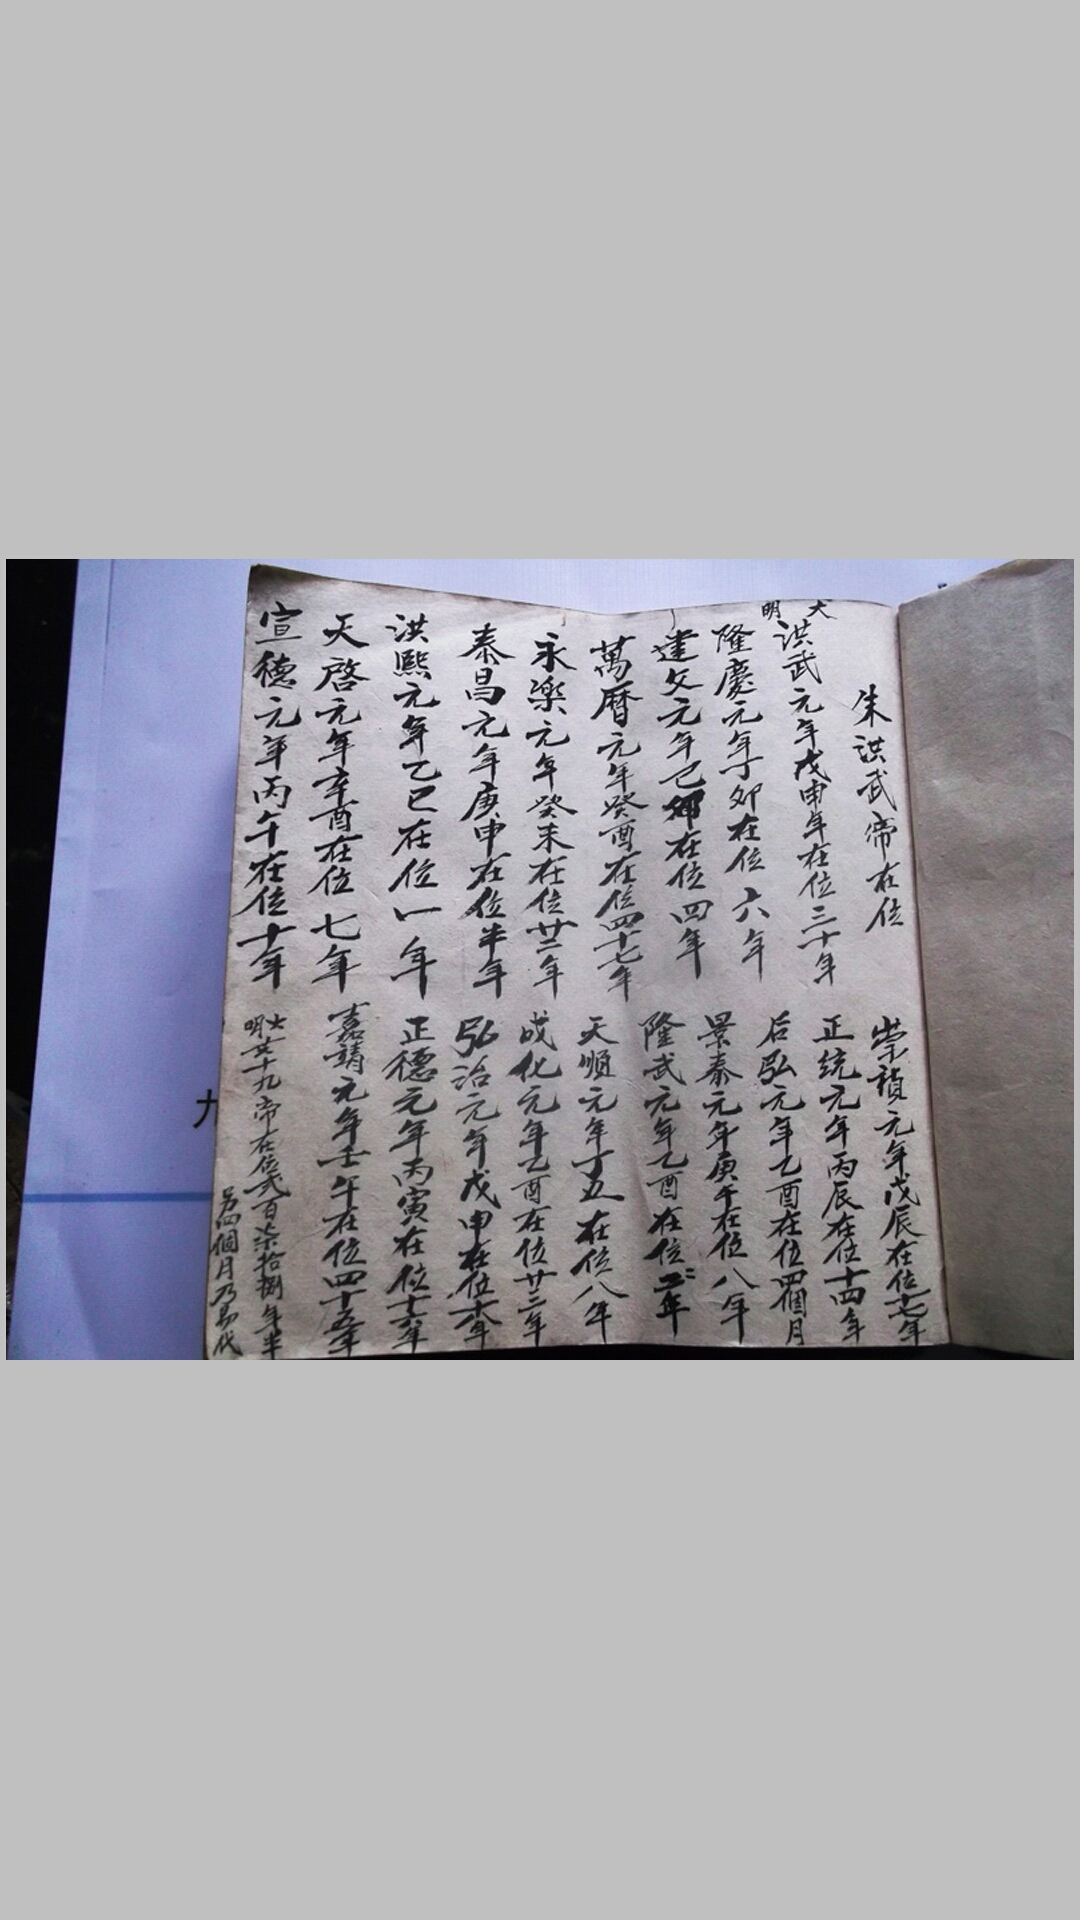 朱洪武帝在位
大明
洪武元年戊申年在位三十年
隆慶元年丁卯在位六年
建文元年己卯在位四年
萬曆元年癸酉在位四十七年
永樂元年癸未在位廿二年
泰昌元年庚申在位半年
洪熙元年乙巳在位一年
天啓元年辛酉在位七年
宣德元年丙午在位十年
崇禎元年戊辰在位十七年
正统元年丙辰在位十四年
后弘元年乙酉在位四個月
景泰元年庚午在位八年
隆武元年乙酉在位二年
天順元年丁丑在位八年
成化元年乙酉在位廿三年
弘治元年戊申在位十八年
正德元年丙寅在位十六年
嘉靖元年壬午在位四十五年
大明共十九帝在位貳百柒拾捌年半
另四個月乃易代
九